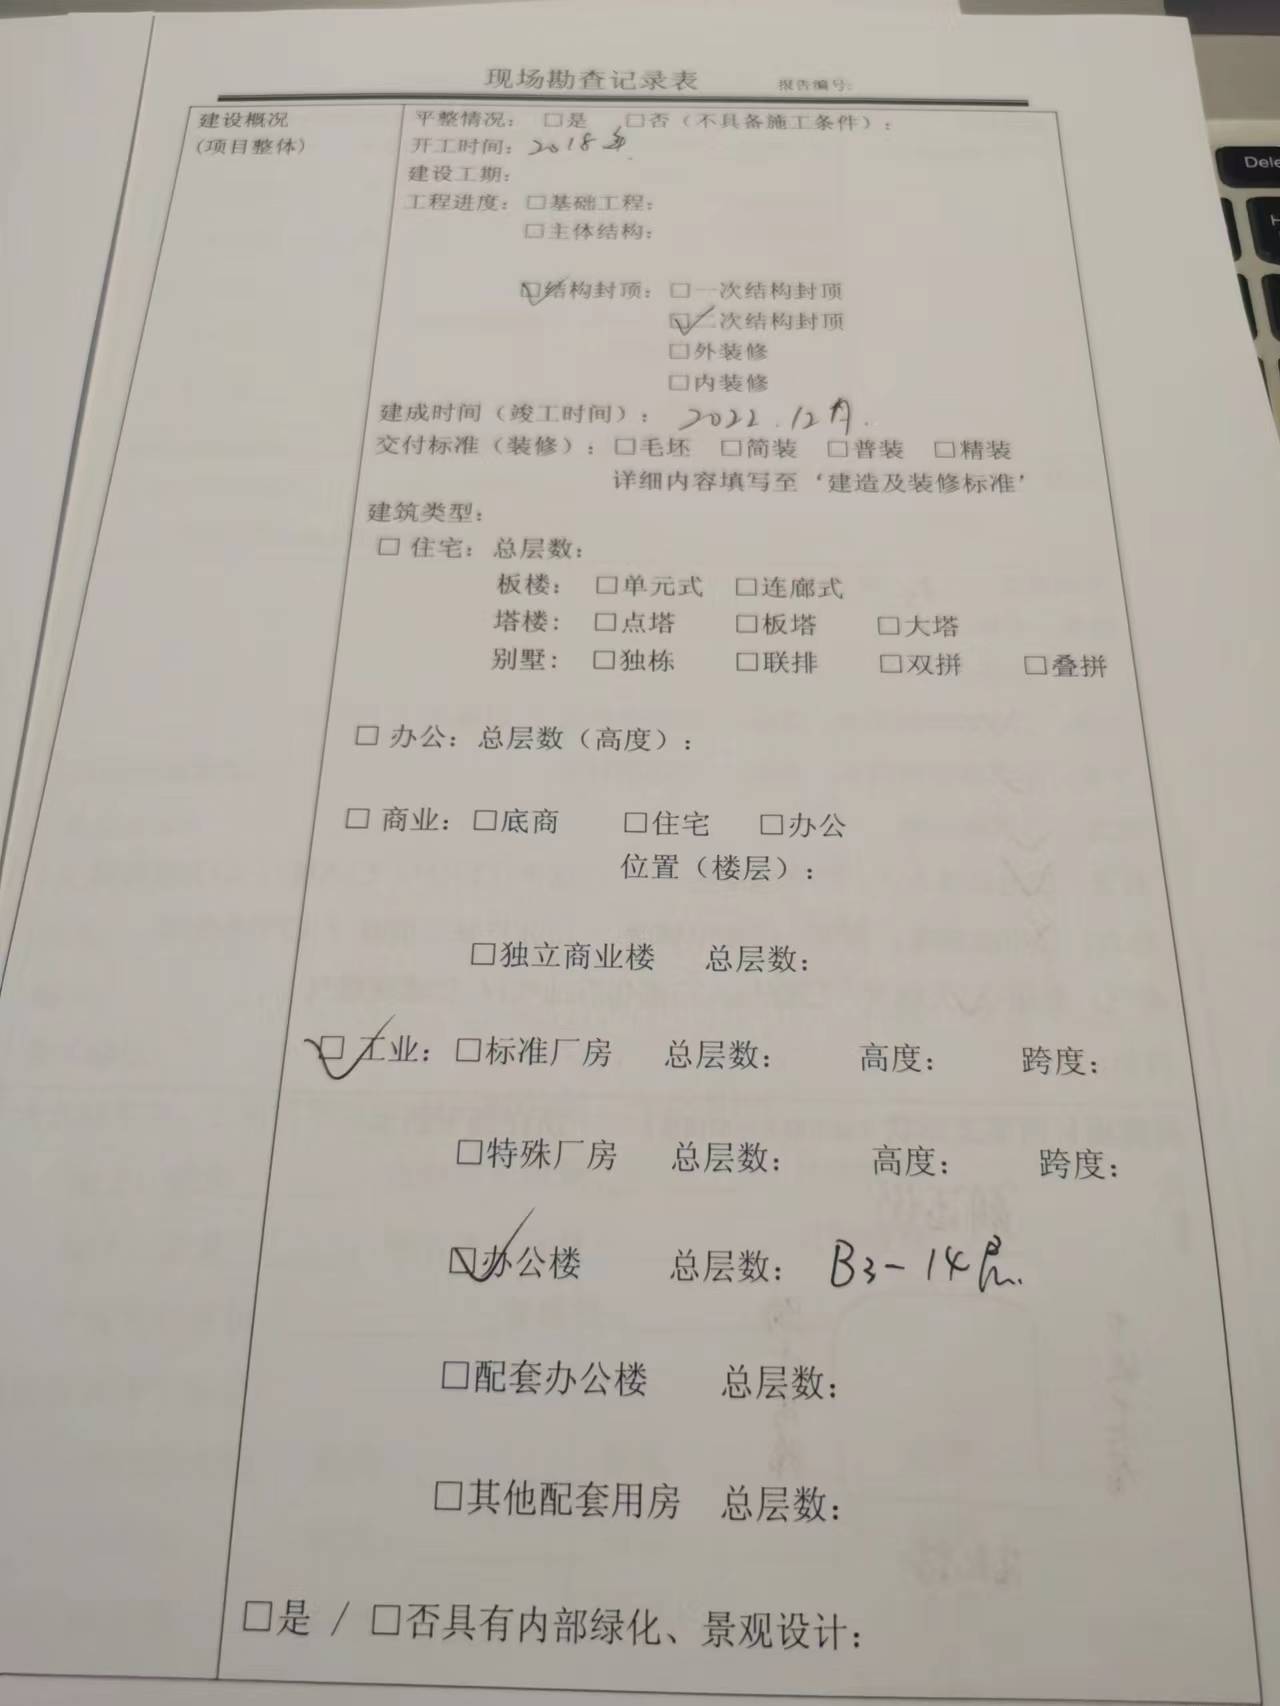 现场勘查记录表 报告编号:
建设概况
(项目整体)
平整情况： □是 □否（不具备施工条件）：
开工时间：2018年
建设工期：
工程进度：□基础工程：
□主体结构：
☑结构封顶：□一次结构封顶
☑二次结构封顶
□外装修
□内装修
建成时间（竣工时间）： 2022.12月.
交付标准（装修）：□毛坯 □简装 □普装 □精装
详细内容填写至‘建造及装修标准’
建筑类型：
□ 住宅：总层数：
板楼： □单元式 □连廊式
塔楼： □点塔 □板塔 □大塔
别墅： □独栋 □联排 □双拼 □叠拼
□ 办公：总层数（高度）：
□ 商业：□底商 □住宅 □办公
位置（楼层）：
□独立商业楼 总层数：
☑ 工业：□标准厂房 总层数： 高度： 跨度：
□特殊厂房 总层数： 高度： 跨度：
☑办公楼 总层数： B3-14层.
□配套办公楼 总层数：
□其他配套用房 总层数：
□是 / □否具有内部绿化、景观设计：
Dele
H